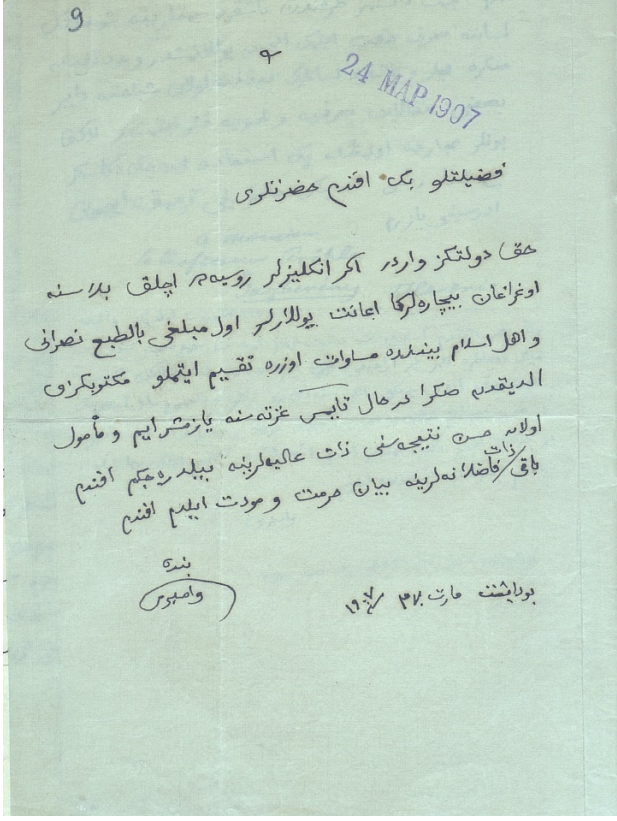 9
٩
24 MAP 1907
فضيلتلو بك افندم حضرتلرى
حق دولتكز واردر اكر انكليزلر روسيه ده اچلق بلاسنه
اوغراغان بيچاره لركا اعانت يوللارلر اول مبلغى بالطبع نصرانى
و اهل اسلام بيننده مساوات اوزره تقسيم ايتملو مكتوبكزى
الديقدن صكرا در حال تايمس غزته سنه يازمشرايم و مأمول
اولان حسن نتيجه سنى ذات عاليه لرينه بيلدره جكم افندم
باقى / ذات فاضلانه لرينه بيان حرمت و مودت ايلدم افندم
بنده
وامبرى
بوداپشت مارت ١٩٠٧